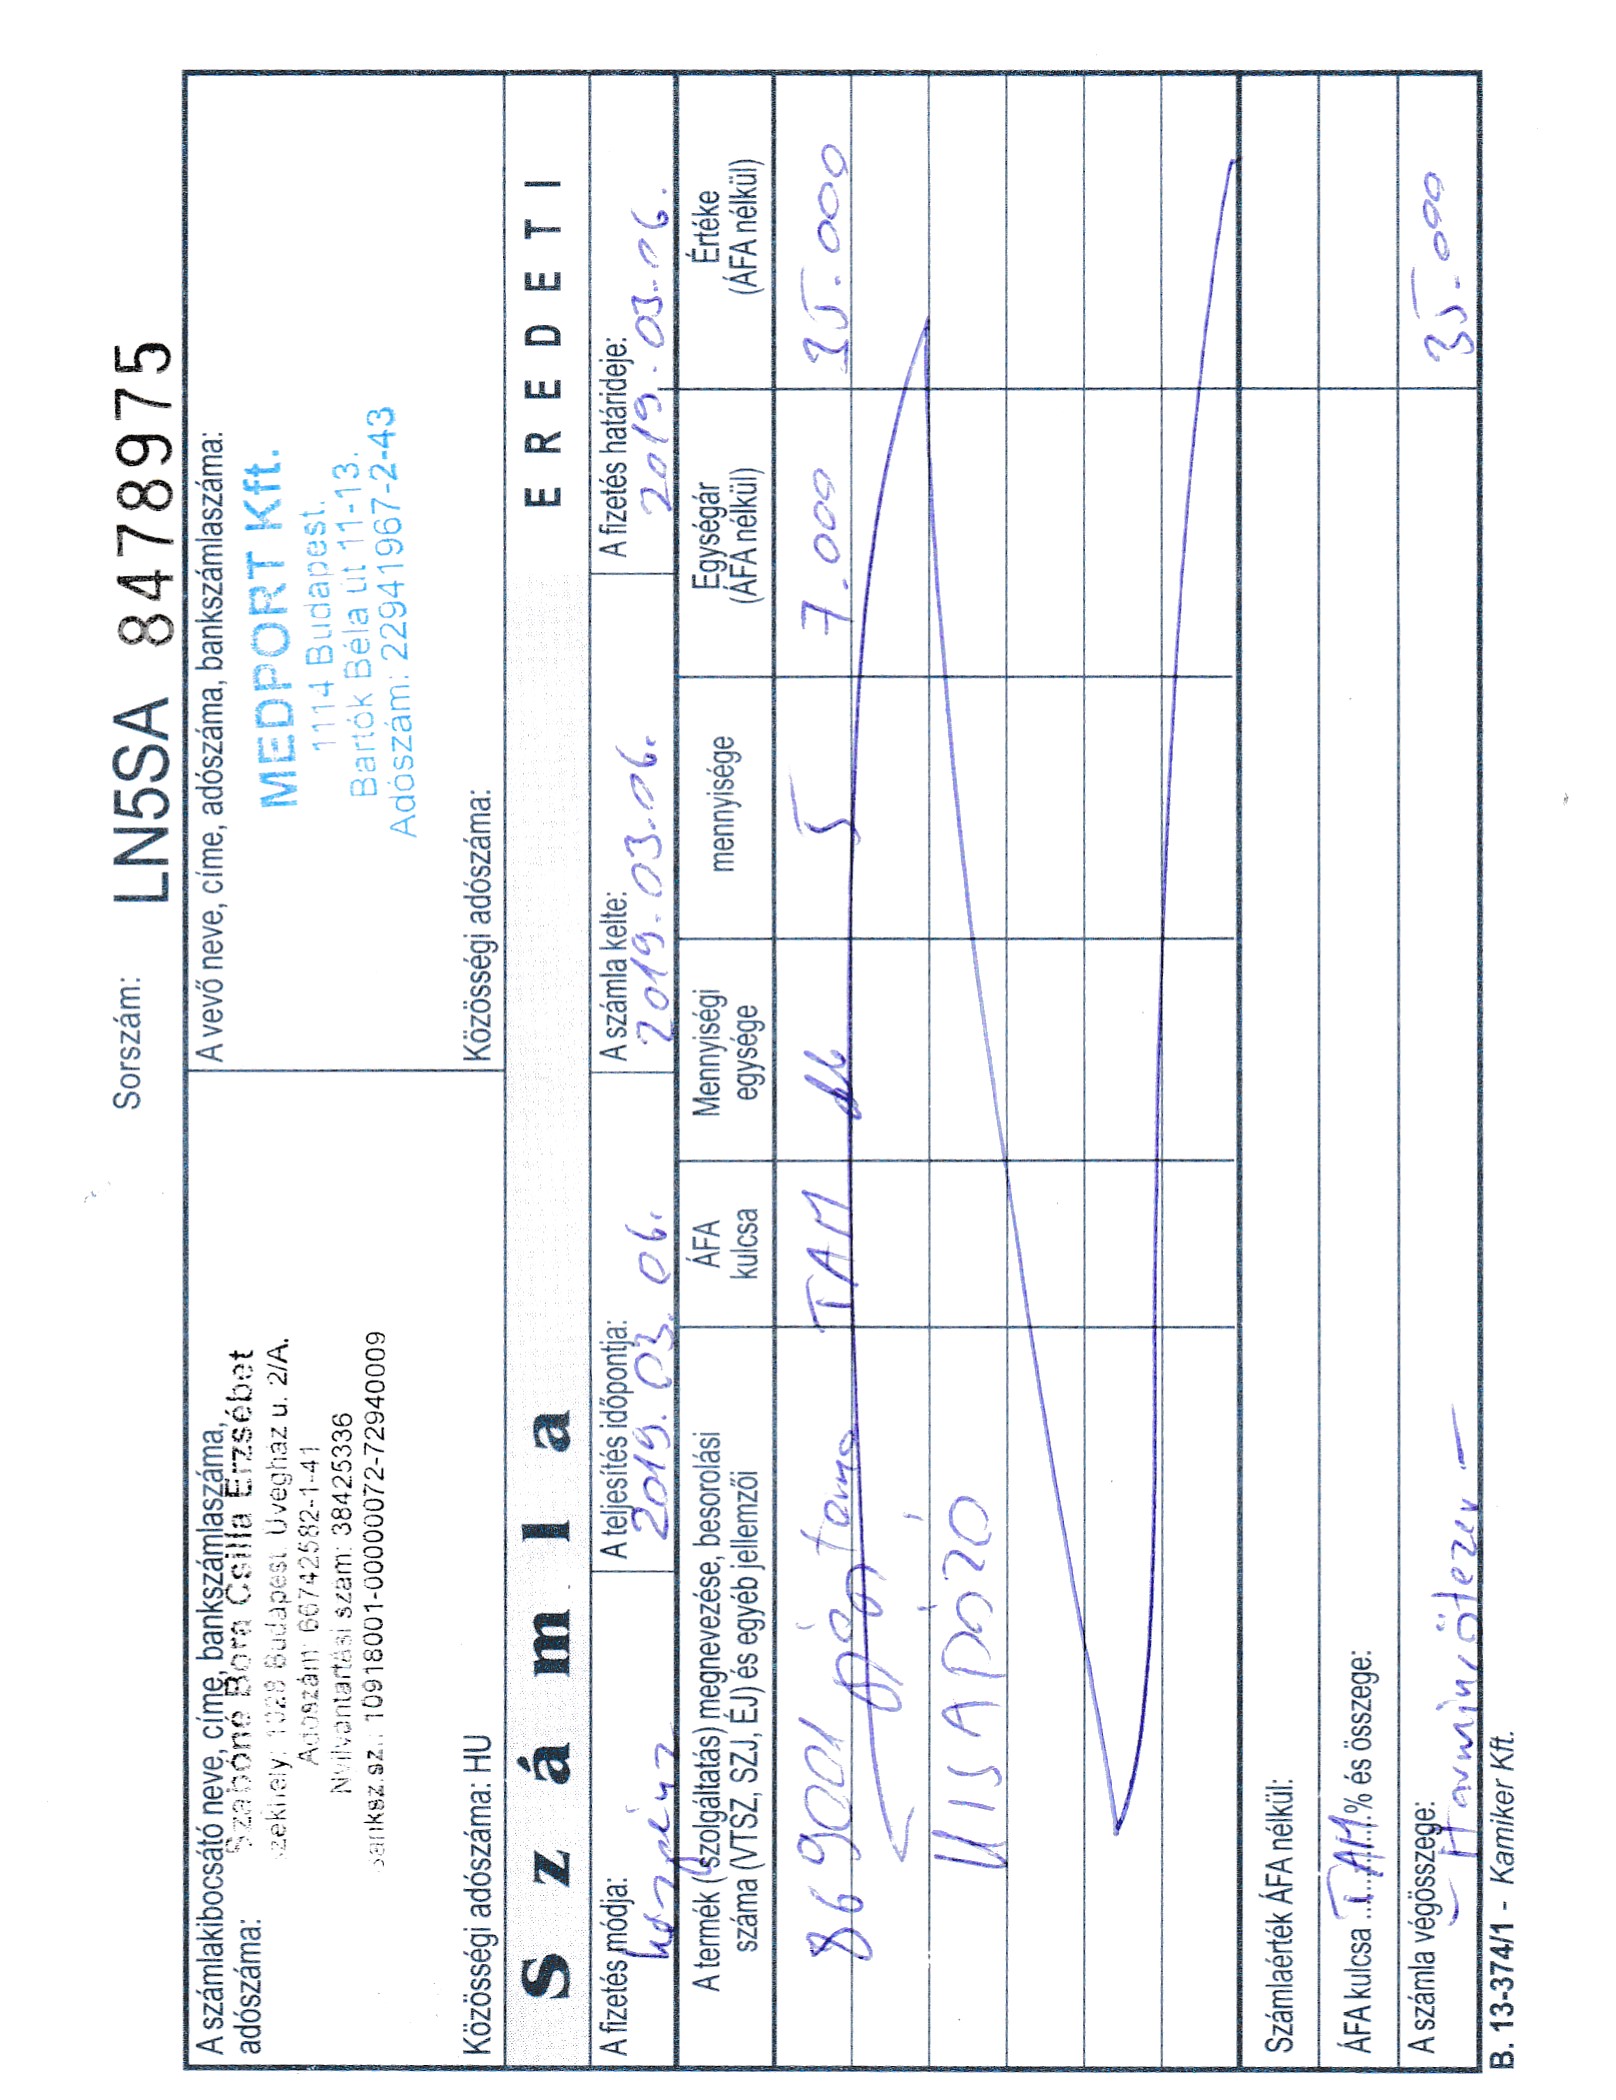 Sorszám: LN5SA 8478975
A számlakibocsátó neve, címe, bankszámlaszáma,
adószáma:
Szabóné Bora Csilla Erzsébet
székhely: 1028 Budapest Üvegház u. 2/A.
Adószám: 66742582-1-41
Nyilvántartási szám: 38425336
banksz.sz.: 10918001-00000072-72940009
Közösségi adószáma: HU
A vevő neve, címe, adószáma, bankszámlaszáma:
MEDPORT Kft.
1114 Budapest.
Bartók Béla út 11-13.
Adószám: 22941967-2-43
Közösségi adószáma:
Számla
EREDETI
A fizetés módja:
készpénz
A teljesítés időpontja:
2019. 03. 06.
A számla kelte:
2019. 03. 06.
A fizetés határideje:
2019. 03. 06.
A termék (szolgáltatás) megnevezése, besorolási
száma (VTSZ, SZJ, ÉJ) és egyéb jellemzői
ÁFA
kulcsa
Mennyiségi
egysége
mennyisége
Egységár
(ÁFA nélkül)
Értéke
(ÁFA nélkül)
869001 TAM db 5 7.000 35.000
KISADÓZÓ
Számlaérték ÁFA nélkül:
ÁFA kulcsa TAM % és összege:
A számla végösszege:
Harmincötezer – 35.000
B. 13-374/1 - Kamiker Kft.